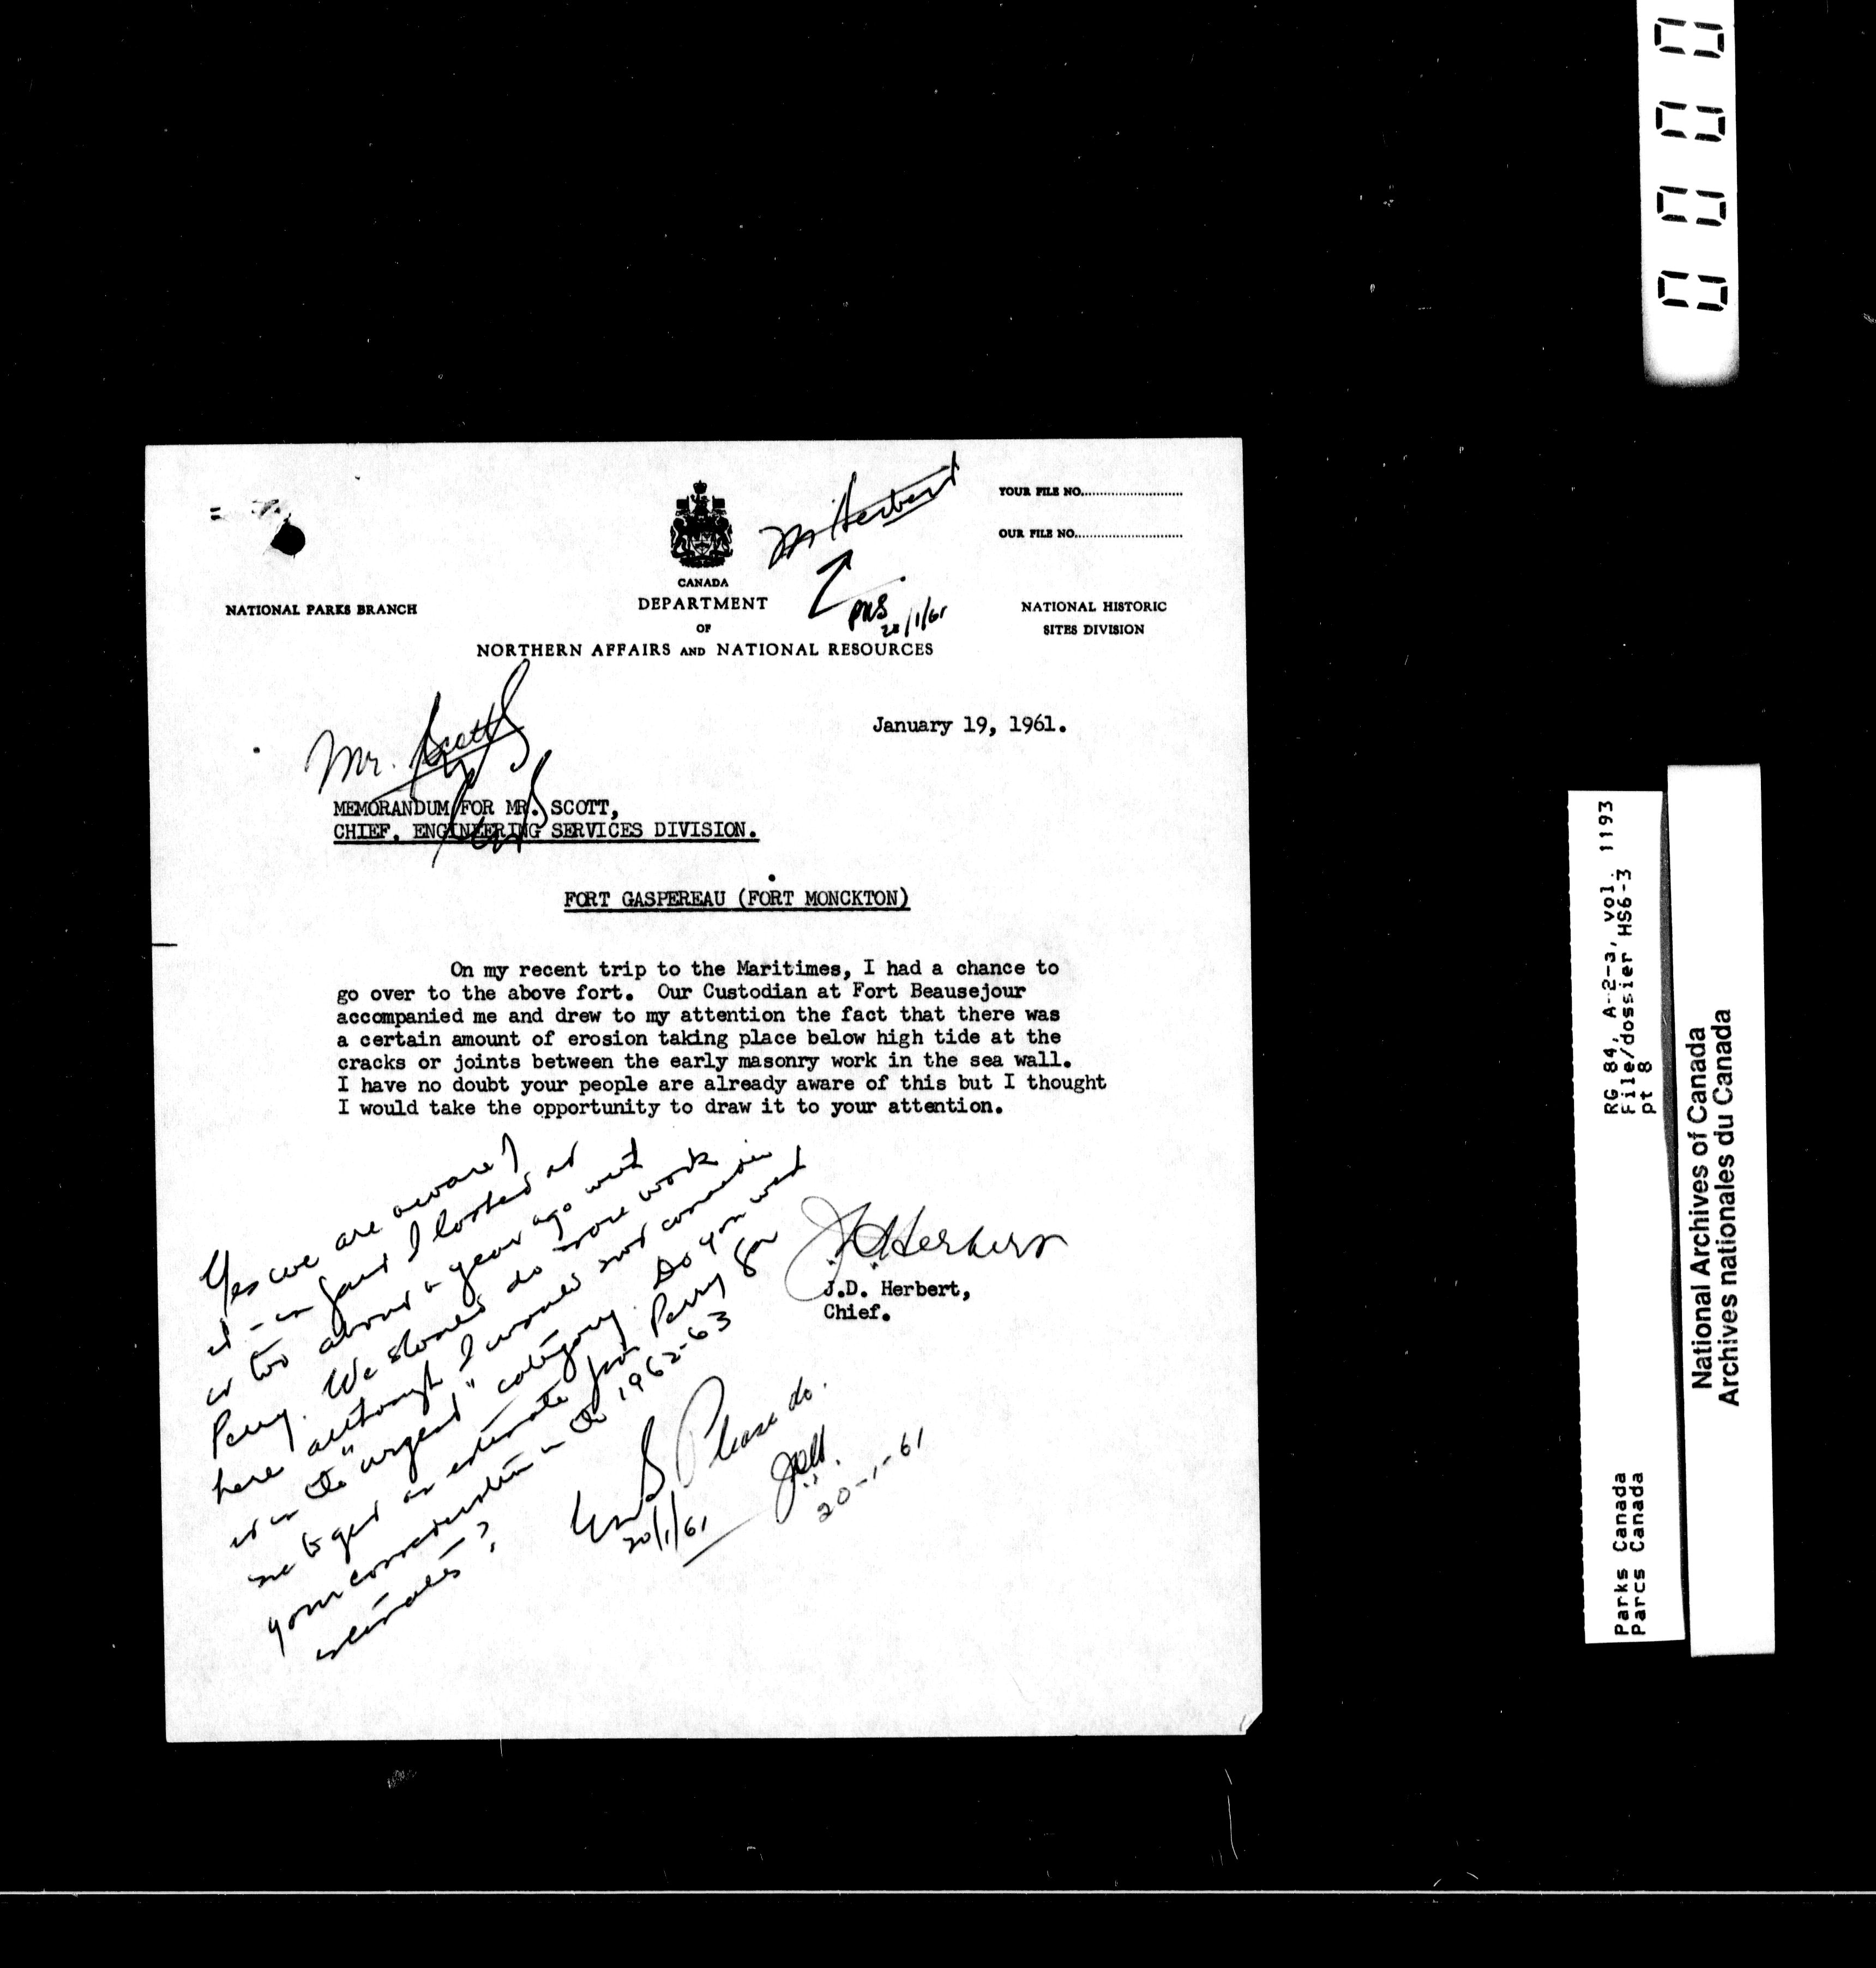 0000
Mr Herbert
YOUR FILE NO.
OUR FILE NO.
CANADA
NATIONAL PARKS BRANCH
DEPARTMENT
20/1/61
NATIONAL HISTORIC
OF
SITES DIVISION
NORTHERN AFFAIRS AND NATIONAL RESOURCES
January 19, 1961.
Mr. Scott
MEMORANDUM FOR MR. SCOTT,
CHIEF, ENGINEERING SERVICES DIVISION.
FORT GASPEREAU (FORT MONCKTON)
On my recent trip to the Maritimes, I had a chance to
go over to the above fort. Our Custodian at Fort Beausejour
accompanied me and drew to my attention the fact that there was
a certain amount of erosion taking place below high tide at the
cracks or joints between the early masonry work in the sea wall.
I have no doubt your people are already aware of this but I thought
I would take the opportunity to draw it to your attention.
Yes we are aware of
it - in fact I looked at
it too about a year ago with
Perry. We should do more work
here although I would not consider
it in the "urgent" category. Do you want
me to get an estimate from Perry for
your consideration in the 1962-63
estimates?
20/1/61
Please do.
JDH
20-1-61
JDHerbert
J.D. Herbert,
Chief.
RG 84, A-2-3, vol. 1193
File/dossier HS6-3
pt 8
Parks Canada
Parcs Canada
National Archives of Canada
Archives nationales du Canada